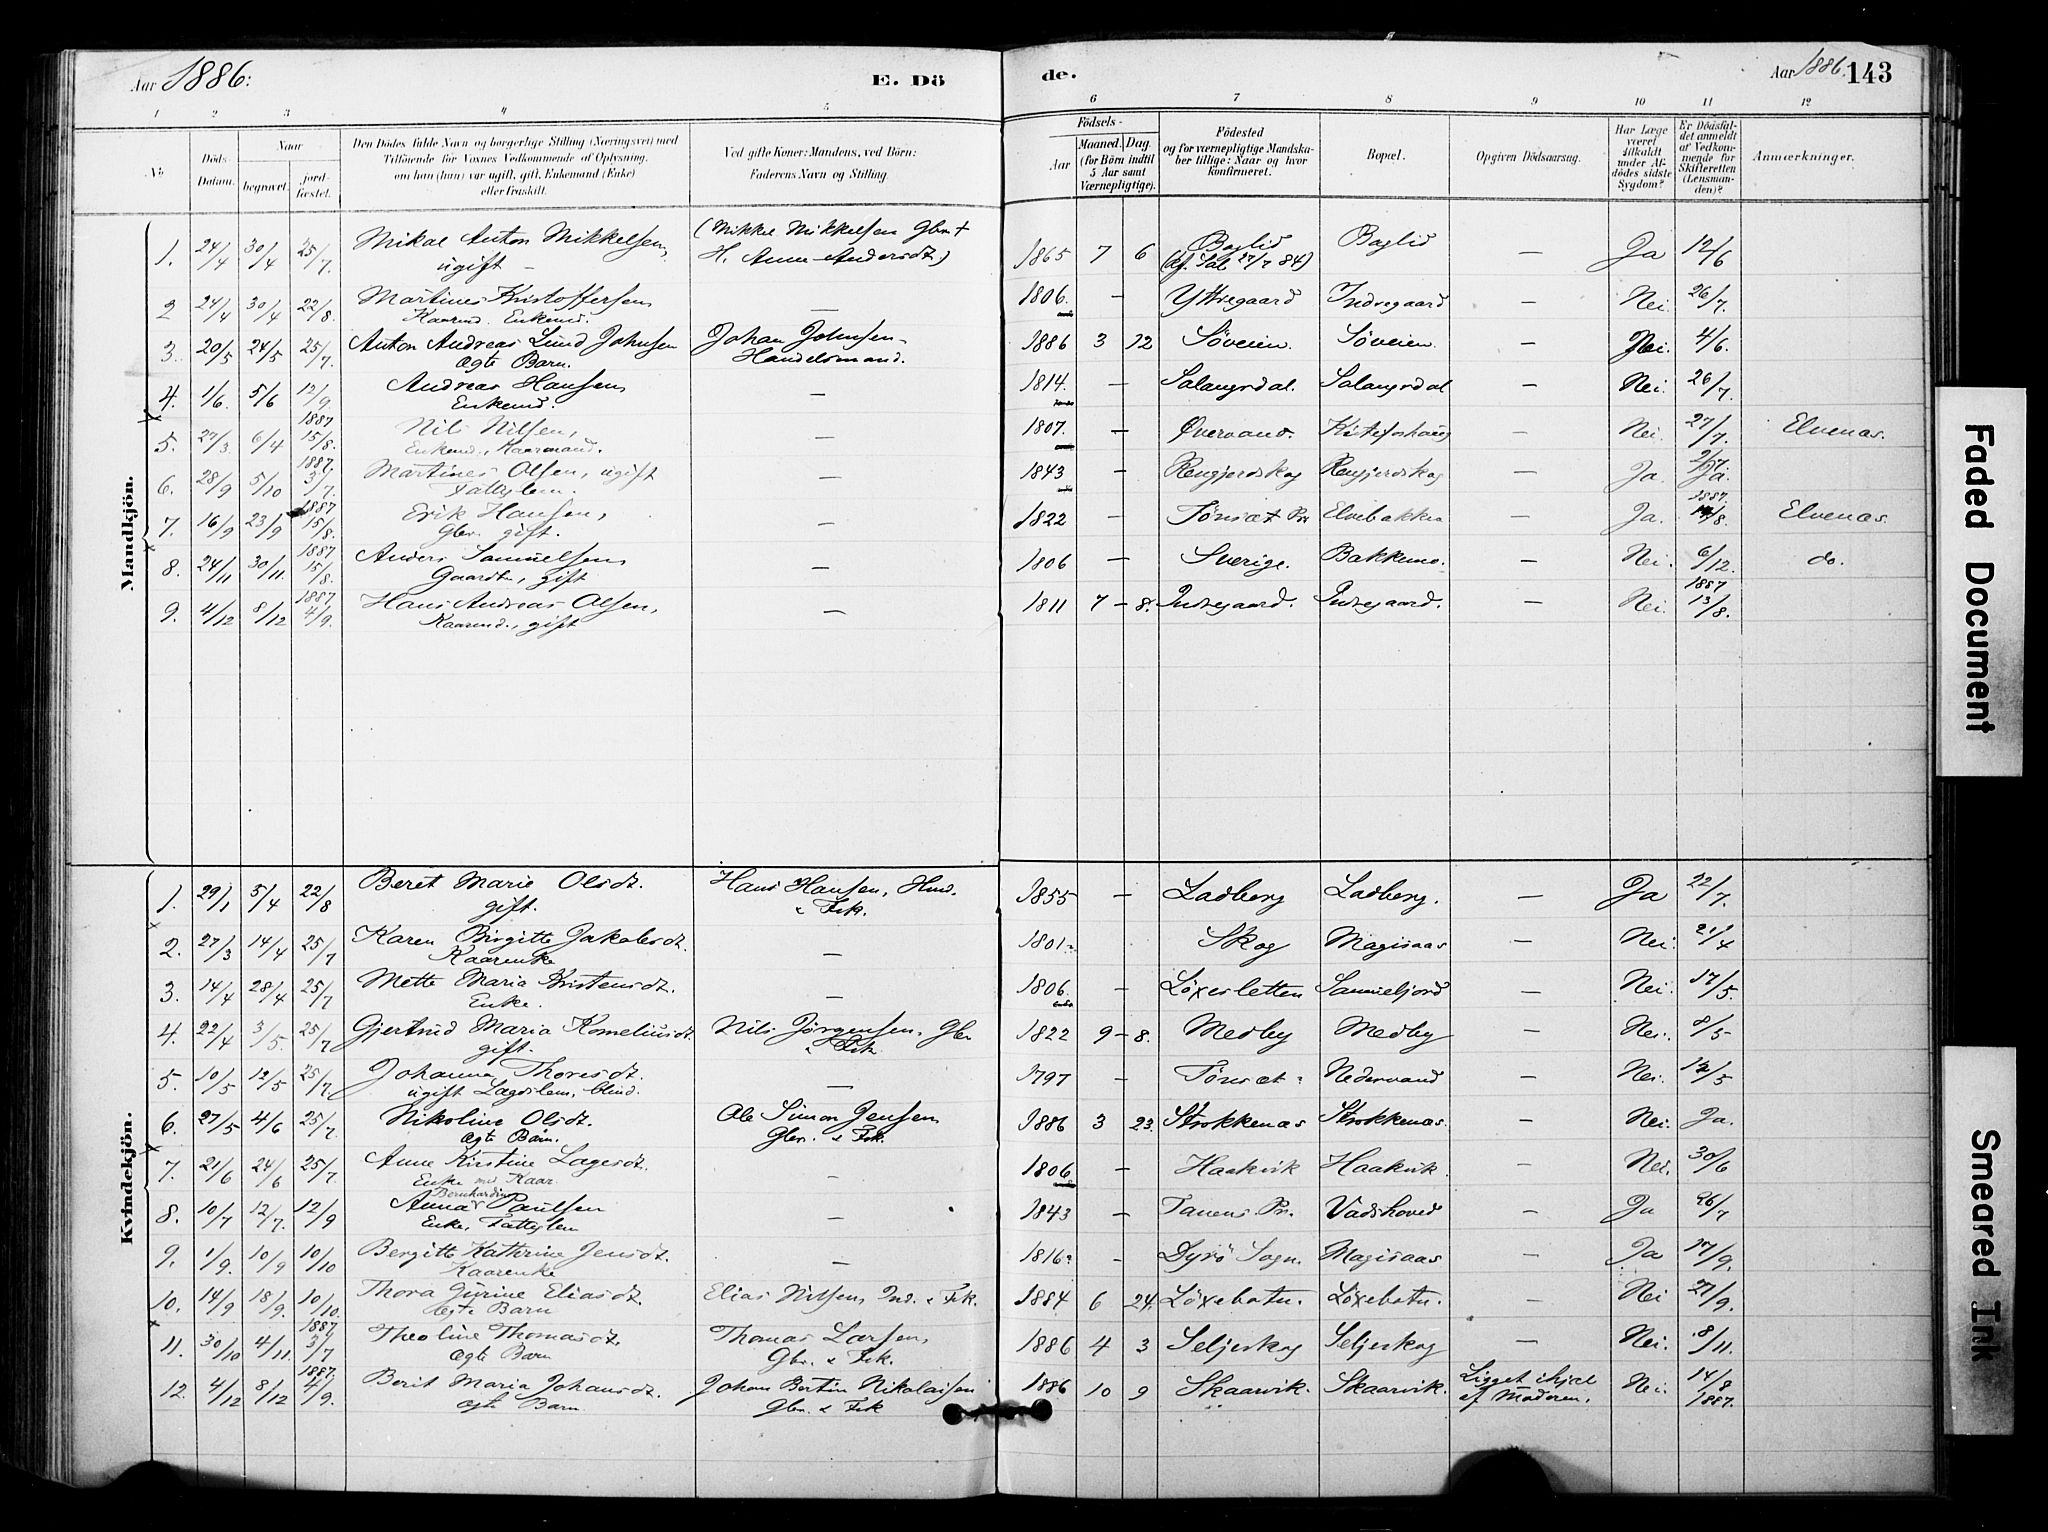 Aar 1886.
E. Dö
de.
Aar 1886.
143
1 2 3 4 5 6 7 8 9 10 11 12
No
Döds-Datum.
Naar
begravet.
jord-fæstet.
Den Dödes fulde Navn og borgerlige Stilling (Næringsvei) med
Tilföiende for Voxnes Vedkommende af Oplysning,
om han (hun) var ugift, gift, Enkemand (Enke)
eller fraskilt.
Ved gifte Koner: Mandens, ved Börn:
Faderens Navn og Stilling.
Födsels-
Aar
Maaned. Dag.
(for Börn indtil
5 Aar samt
Værnepligtige).
Födested
og for værnepligtige Mandska-
ber tillige: Naar og hvor
konfirmeret.
Bopæl.
Opgiven Dödsaarsag.
Har Læge
været
tilkaldt
under Af-
dödes sidste
Sygdom?
Er Dödsfal-
det anmeldt
af Vedkom-
mende for
Skifteretten
(Lensman-
den)?
Anmærkninger.
Mandkjön.
1. 24/4 30/4 25/7. Mikal Anton Mikkelsen, (Mikkel Mikkelsen Gbr. + 1865 7 6 Baglid Baglid — Ja 12/6
ugift — H. Anne Andersdt.) 27/7 84)
2 24/4 30/4 22/8. Martines Kristoffersen — 1806. — Yttregaard Indregaard — Nei. 26/7.
Kaarmd. Enkemd.
3. 20/5 24/5 25/7. Anton Andreas Lund Johnsen Johan Johnsen 1886 3 12 Söveien. Söveien. — Nei. 4/6.
ægte Barn. Handelsmand.
4. 1/6. 5/6 12/9. Andreas Hansen — 1814. — Salangsdal. Salangsdal — Nei. 26/7.
Enkemd.
5. 27/3 6/4 1887 15/8. Nils Nilsen, — 1807. — Övervand. — Nei. 27/7. Elvenæs.
Enkemd., Kaarmand.
6. 28/9 5/10 1887. 3/7. Martines Olsen, ugift — 1843 — Rengjerdskog Rengjerdskog — Ja.
Fattiglem.
7. 16/9 23/9 1887 15/8. Erik Hansen, — 1822 — Tönset Pr. Elvebakken — Ja. 1887. Elvenæs.
Gbr. gift.
8. 24/11 30/11. 1887 15/8. Anders Samuelsen — 1806 — Sverige. Bakkemo. — Nei. 6/12. do.
gift
9. 4/12 8/12 1887 4/9. Hans Andreas Olsen, — 1811 7 — 8. Indregaard. Indregaard. — Nei. 1887 13/8.
Kaarmd., gift
Kvindekjön.
1. 29/1 5/4 22/8 Beret Marie Olsdt. Hans Hansen, Hmd. 1855 — Ladberg Ladberg. — Ja 22/7.
gift. & Fisk.
2. 27/3 14/4 25/7 Karen Birgitte Jakobsdt. — 1801. Skog Magisaas — Nei. 21/4
Kaarenke
3. 14/4 28/4 25/7 Mette Maria Kristensdt. — 1806. — Löxesletten — Nei. 17/5.
Enke.
4. 22/4 3/5. 25/7 Gjertrud Maria Korneliusdt. Nils Jörgensen, Gbr. 1822 9 — 8. Medby Medby — Nei. 8/5
gift. & Fisk.
5. 10/5 12/5 25/7 Johanna Thoresdt. — 1797 — Tönset. Nedervand — Nei.
ugift Lægdslem, blind.
6. 27/5 4/6 25/7. Nikoline Olsdt. Ole Simon Jensen 1886 3 23. Strokkenæs Strokkenæs. — Nei. Ja.
ægte Barn. Gbr. & Fisk.
7. 21/6 24/6 25/7. Anne Kirstine Lagesdt. — 1806 — Haakvik Haakvik. — Nei. 30/6
Enke med Kaar.
8. 10/7 12/7. 12/9 Anna Bernhardine Paulsen — 1843 — Tanens Pr. Vadshoved — Ja 26/7
Enke, Fattiglem
9. 1/9. 10/9 10/10 Bergitte Kathrine Jensdt. — 1816. — Dyrö Sogn. Magisaas — Ja 17/9.
Kaarenke
10. 14/9. 18/9. 10/10. Thora Jörine Eliasdt. Elias Nilsen, Ind. & Fisk. 1884 6 24. Löxebotn. Löxebotn. — Nei 27/9.
ægte Barn
11. 30/10 4/11. 1887 3/7 Theoline Thomasdt. Thomas Larsen, 1886 4 3 Seljeskog Seljeskog — Nei. 8/11.
ægte Barn Gbr. & Fisk.
12. 4/12 8/12 1887. 4/9. Berit Maria Johansdt. Johan Bertin Nikolaisen 1886 10 9 Skaarvik. Skaarvik. Ligget ihjæl Nei. 14/8
ægte Barn. Gbr. & Fisk af Moderen. 1887.
Faded Document
Smeared Ink